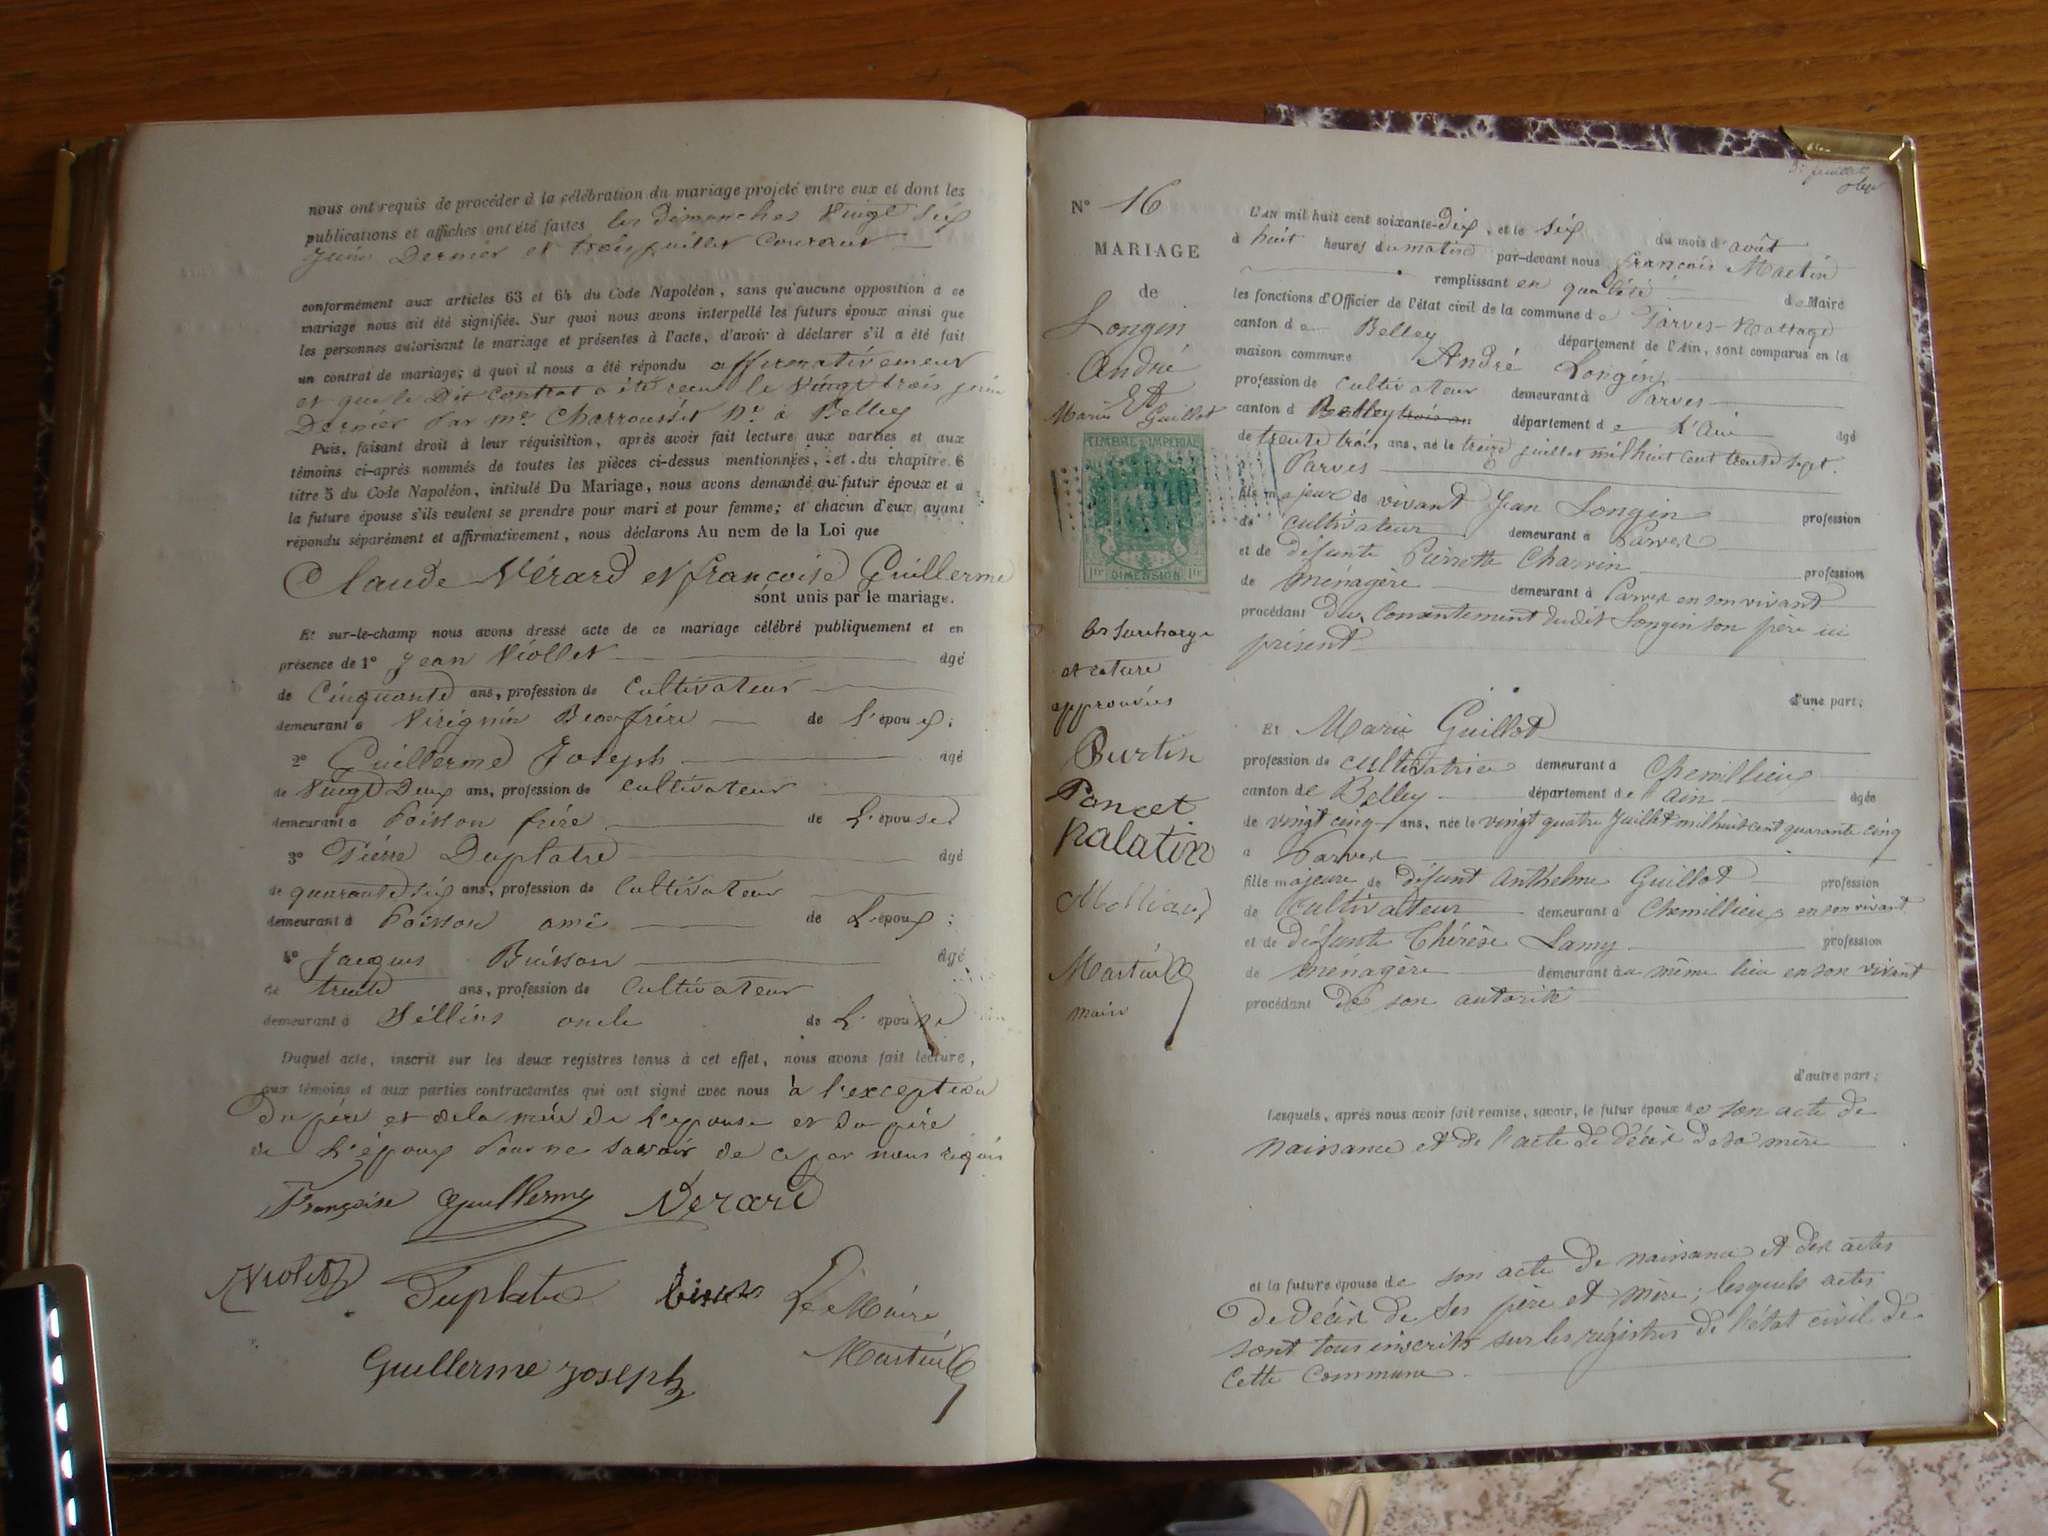 nous ont requis de procéder à la célébration du mariage projeté entre eux et dont les
publications et affiches ont été faites les dimanches Vingt six
Juin Dernier et trois juillet Courant
conformément aux articles 63 et 64 du Code Napoléon, sans qu'aucune opposition à ce
mariage nous ait été signifiée. Sur quoi nous avons interpellé les futurs époux ainsi que
les personnes autorisant le mariage et présentes à l'acte, d'avoir à déclarer s'il a été fait
un contrat de mariage; à quoi il nous a été répondu affirmativement
et que le Dit Contrat a été recu le Vingt trois juin
Dernier Par Me Charroussit Nre à Belley
Puis, faisant droit à leur réquisition, après avoir fait lecture aux parties et aux
témoins ci-après nommés de toutes les pièces ci-dessus mentionnées, et du chapitre 6
titre 5 du Code Napoléon, intitulé Du Mariage, nous avons demandé au futur époux et à
la future épouse s'ils veulent se prendre pour mari et pour femme; et chacun d'eux ayant
répondu séparément et affirmativement, nous déclarons Au nom de la Loi que
Claude Vérard et françoise Guillerme
sont unis par le mariage.
Et sur-le-champ nous avons dressé acte de ce mariage célébré publiquement et en
présence de 1° Jean Viollet âgé
de Cinquante ans, profession de Cultivateur
demeurant à Virignin Beaufrère de l'époux;
2° Guillerme Joseph âgé
de Vingt Deux ans, profession de cultivateur
demeurant à Poisson frère de L'épouse
3° Pierre Duplatre âgé
de quarante six ans, profession de Cultivateur
demeurant à Poisson ami de L'époux;
4° Jacques Buisson âgé
de trente ans, profession de Cultivateur
demeurant à oncle de L'épouse
Duquel acte, inscrit sur les deux registres tenus à cet effet, nous avons fait lecture,
aux témoins et aux parties contractantes qui ont signé avec nous à l'exception
Du père et de la mère de L'épouse et du père
de L'époux Pour ne savoir de ce par nous réquis
Françoise Guillerme Verard
Violet Duplatre Le Maire
Guillerme Joseph Martin
N° 16
MARIAGE
de
Longin
André
Et
Marie Guillot
TIMBRE IMPÉRIAL
1 fr DIMENSION 1 fr
les surcharge
et rature
approuvées
Burtin
Poncet
Palatin
Martin
maire
L'AN mil huit cent soixante-dix, et le six du mois d'août
à huit heures du matin par-devant nous françois Martin
remplissant en qualité de Maire
les fonctions d'Officier de l'état civil de la commune de Parves-Nattage
canton de Belley département de l'Ain, sont comparus en la
maison commune André Longin
profession de cultivateur demeurant à Parves
canton d Belley département de l'Ain âgé
de trente trois ans, né le treize juillet mil huit cent trente sept
Parves
fils majeur de vivant Jean Longin profession
de cultivateur demeurant à Parves
et de défunte Pierrette Charvin profession
de ménagère demeurant à Parves en son vivant
procédant du consentement dudit Longin son père ici
présent
d'une part;
Et Marie Guillot
profession de cultivatrice demeurant à Chemillieu
canton de Belley département de Ain âgée
de vingt cinq ans, née le vingt quatre Juillet mil huit cent quarante cinq
à Parves
fille majeure de défunt Anthelme Guillot profession
de Cultivateur demeurant à Chemillieu en son vivant
et de défunte Thérèse Lamy profession
de ménagère demeurant au même lieu en son vivant
procédant de son autorité
d'autre part;
Lesquels, après nous avoir fait remise, savoir, le futur époux de son acte de
naissance et de l'acte de décès de sa mère
et la future épouse de son acte de naissance et des actes
de décès de ses père et mère; lesquels actes
sont tous inscrits sur les régistres de l'état civil de
Cette Commune.